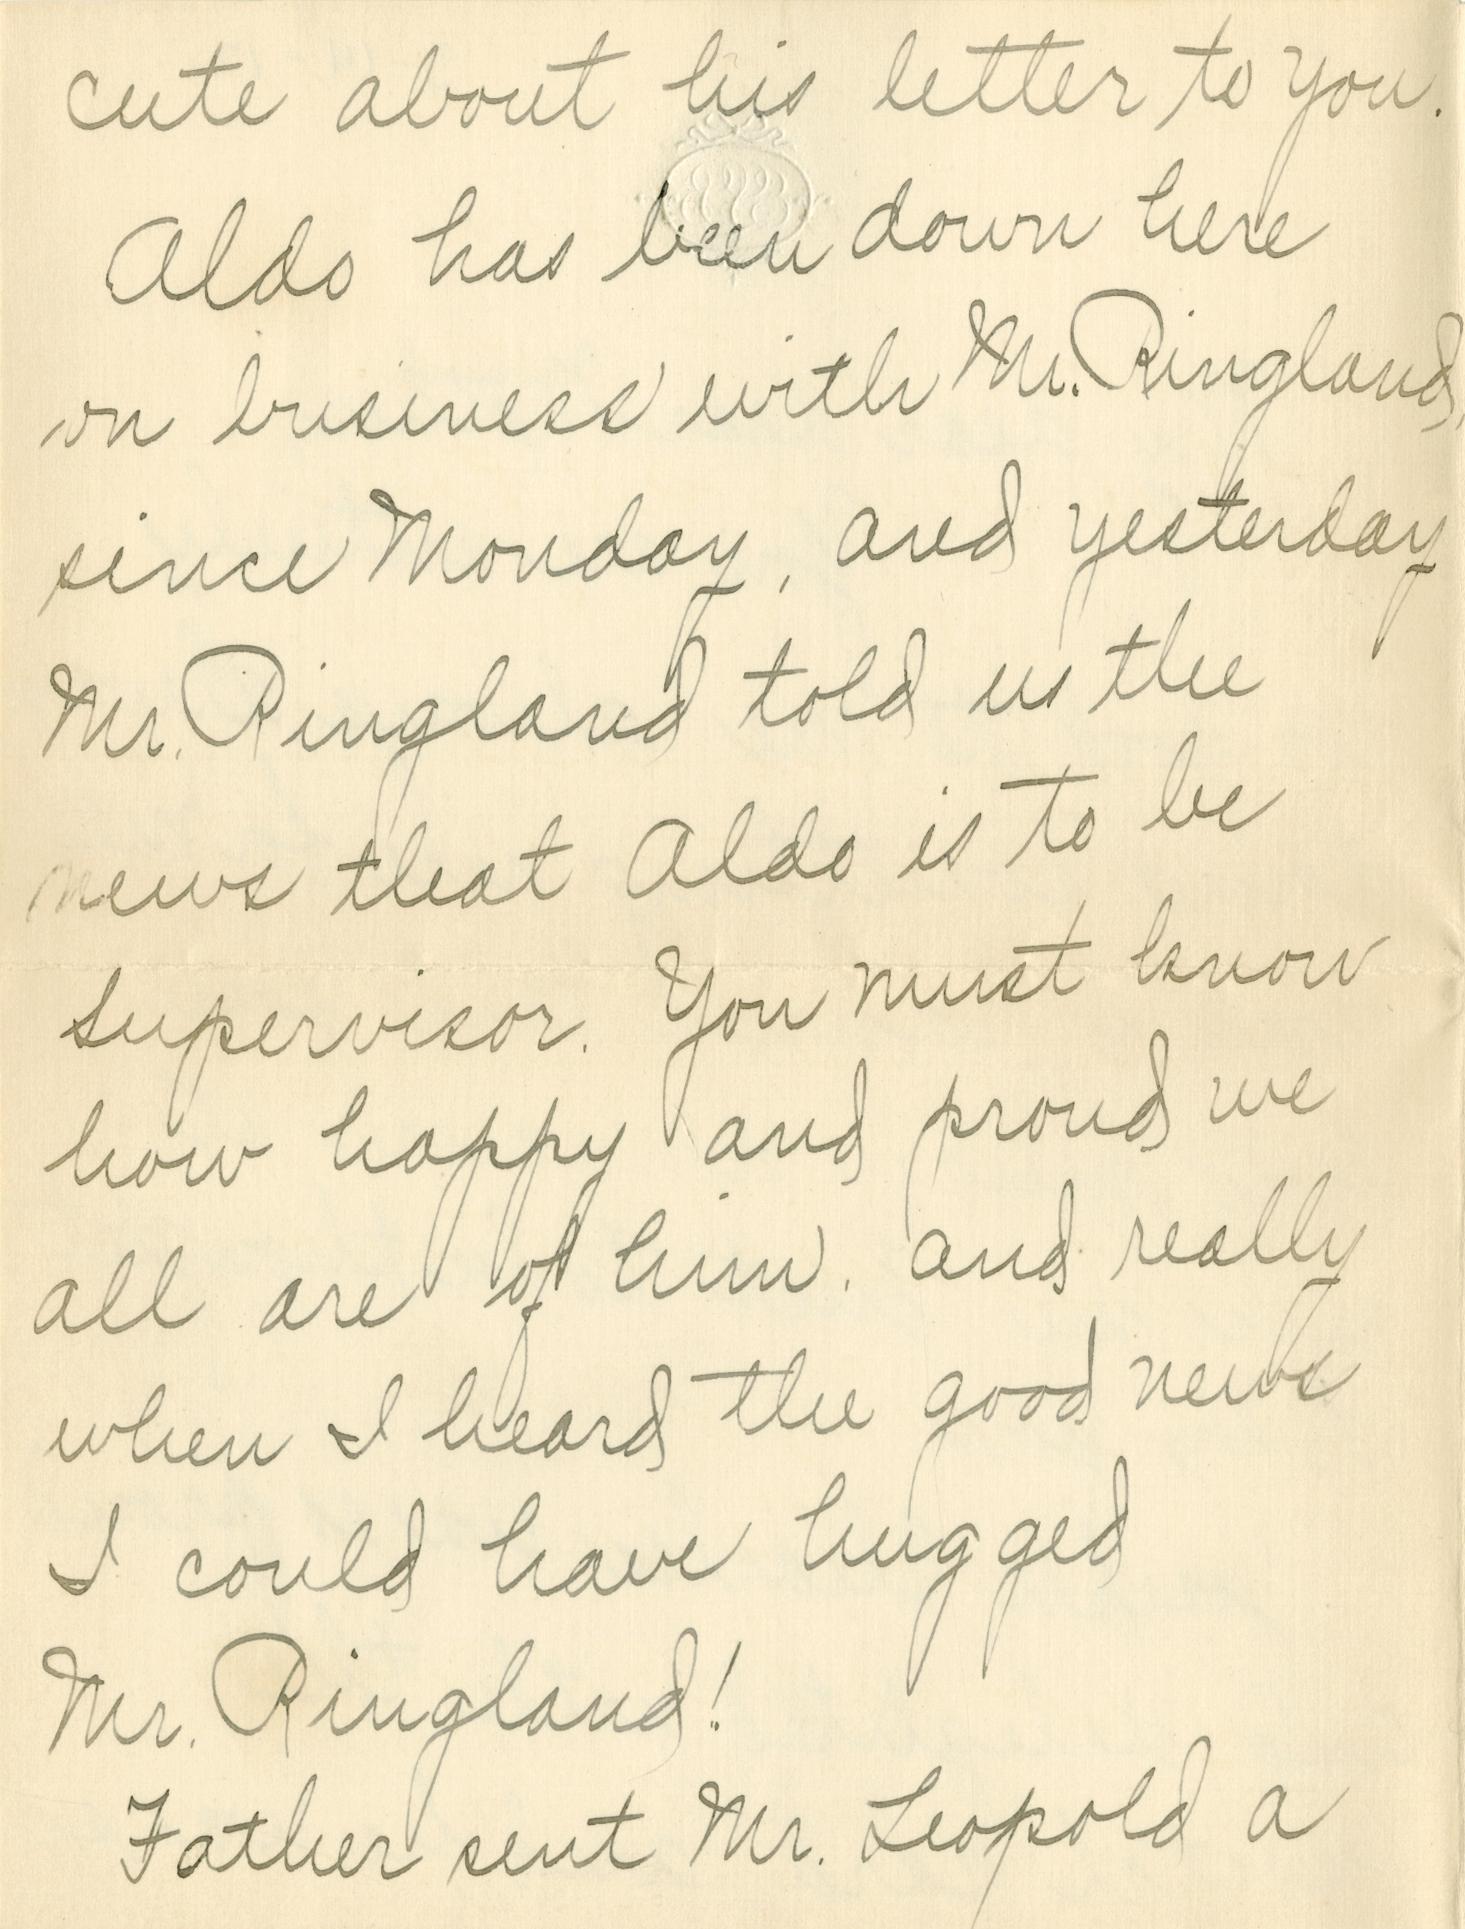 cute about his letter to you.
Aldo has been down here
on business with Mr. Ringland,
since Monday, and yesterday
Mr. Ringland told us the
news that Aldo is to be
supervisor. You must know
how happy and proud we
all are of him. and really
when I heard the good news
I could have hugged
Mr. Ringland!
Father sent Mr. Leopold a